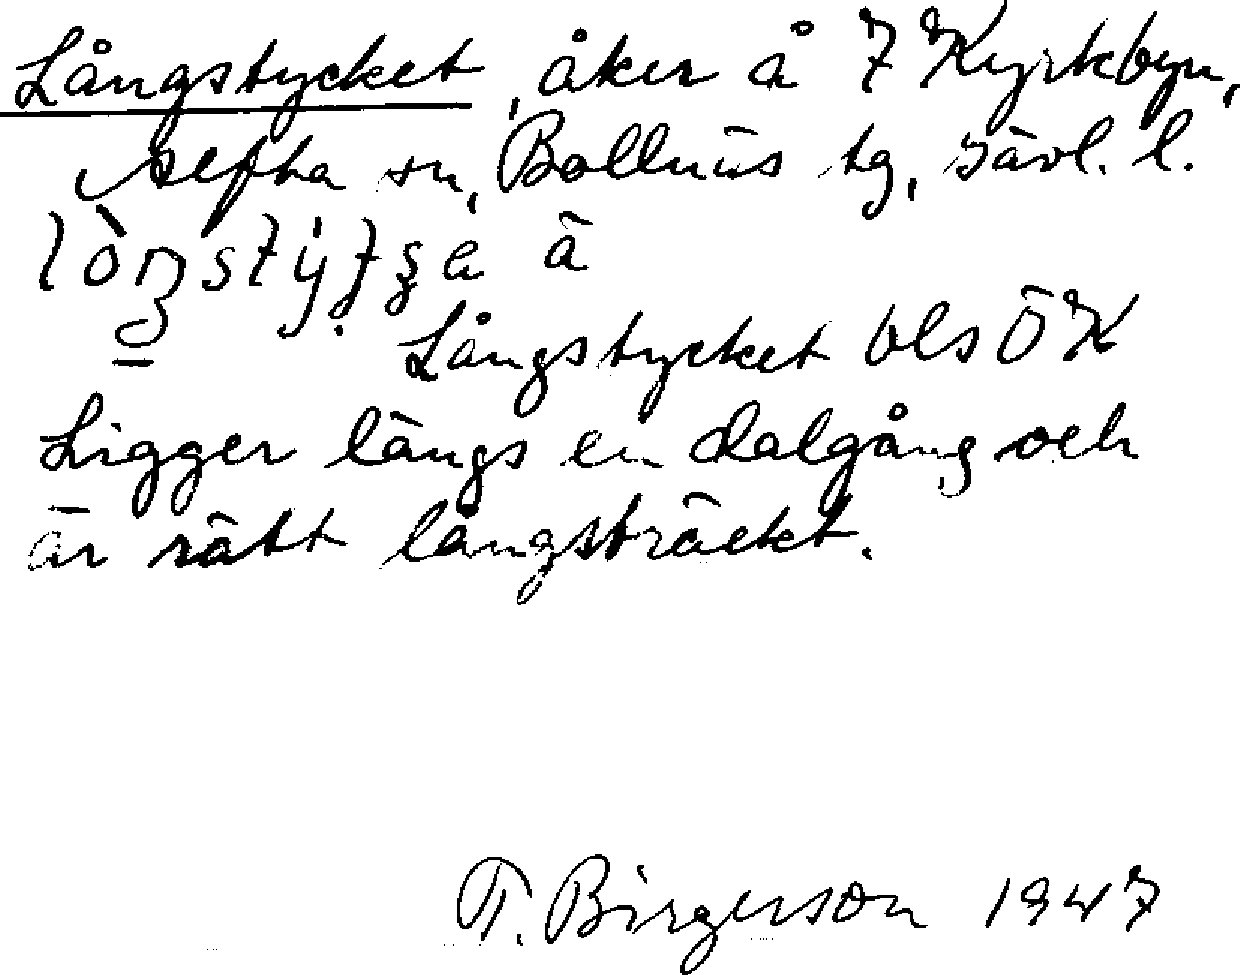 Långstycket, åker å 7 Kyrkbyn,
Alfta sn, Bollnäs tg, Gävl. l.
Långstycket bls ÖK
Ligger längs en dalgång och
är rätt långsträckt.
T. Birgerson 1947